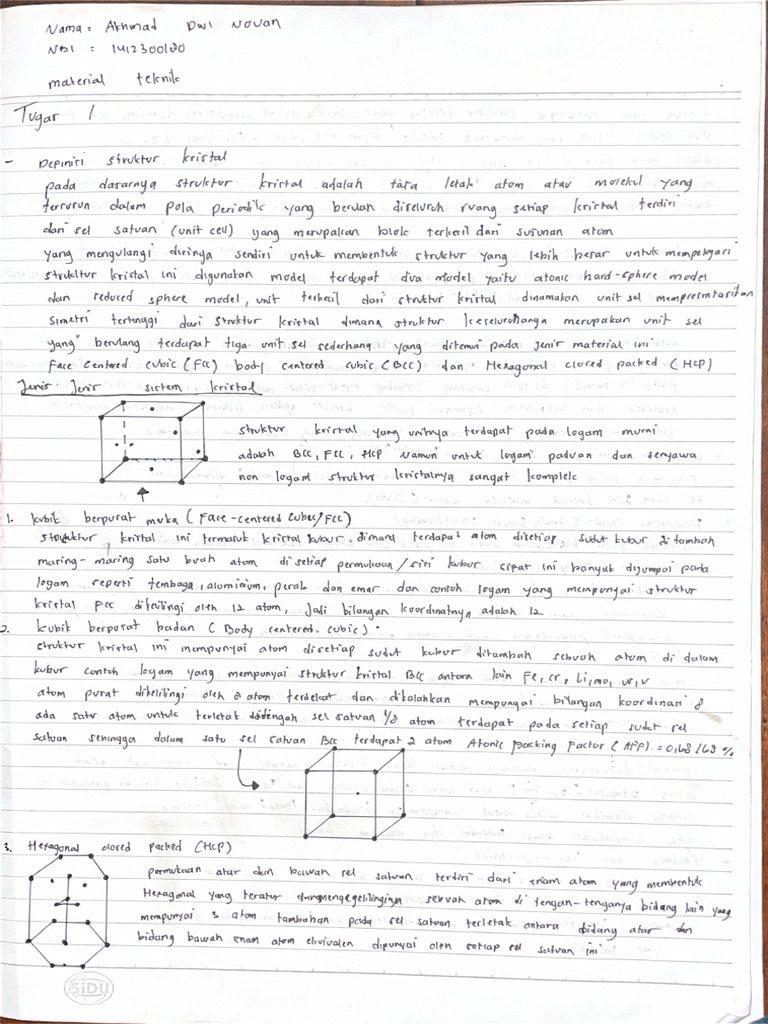 Nama = Akhmad Dwi Novan
NBI = 1412300180
material teknik
Tugas 1
- Depinisi struktur kristal
pada dasarnya struktur kristal adalah tata letak atom atau molekul yang
tersusun dalam pola periodik yang berulan diseluruh ruang setiap kristal terdiri
dari sel satuan (unit cell) yang merupakan blok terkecil dari susunan atom
yang mengulangi dirinya sendiri untuk membentuk struktur yang lebih besar untuk mempelajari
struktur kristal ini digunakan model terdapat dua model yaitu atomic hard-sphere model
dan reduced sphere model, unit terkecil dari struktur kristal dinamakan unit sel mempresentasikan
simetri tertinggi dari struktur kristal dimana struktur keseluruhanga merupakan unit sel
yang berulang terdapat tiga unit sel sederhana yang ditemui pada jenis material ini
Face Centered cubic (Fcc) body centered cubic (BCC) dan Hexagonal closed packed (HCP)
Jenis-Jenis sistem kristal
struktur kristal yang unitnya terdapat pada logam murni
adalah BCC, FCC, HCP Namun untuk logam paduan dan senyawa
non logam struktur kristalnya sangat komplek
1. kubik berpusat muka (Face-centered cubic/FCC)
struktur kristal ini termasuk kristal kubus dimana terdapat atom disetiap sudut kubus di tambah
masing-masing satu buah atom di setiap permukaan/sisi kubus sipat ini banyak dijumpai pada
logam seperti tembaga, aluminium, perak dan emas dan contoh logam yang mempunyai struktur
kristal FCC dikelilingi oleh 12 atom, jadi bilangan koordinatnya adalah 12
2. kubik berpusat badan (Body centered cubic)
struktur kristal ini mempunyai atom disetiap sudut kubus ditambah sebuah atom di dalam
kubus contoh logam yang mempunyai struktur kristal BCC antara lain Fe, cr, Li, mo, w, v
atom pusat dikelilingi oleh 8 atom terdekat dan dikalahkan mempunyai bilangan koordinasi 8
ada satu atom untuk terletak ditengah sel satuan 1/8 atom terdapat pada setiap sudut sel
satuan sehingga dalam satu sel satuan Bcc terdapat 2 atom Atomic packing Factor (APF) = 0,68/68 %
3. Hexagonal closed packed (HCP)
permukaan atas dan bawah sel satuan terdiri dari enam atom yang membentuk
Hexagonal yang teratur sebuah atom di tengan-tenganya bidang lain yang
mempunyai 3 atom tambahan pada sel satuan terletak antara bidang atas dan
bidang bawah enam atom ekivivalen dipunyai oleh setiap sel satuan ini
SiDU